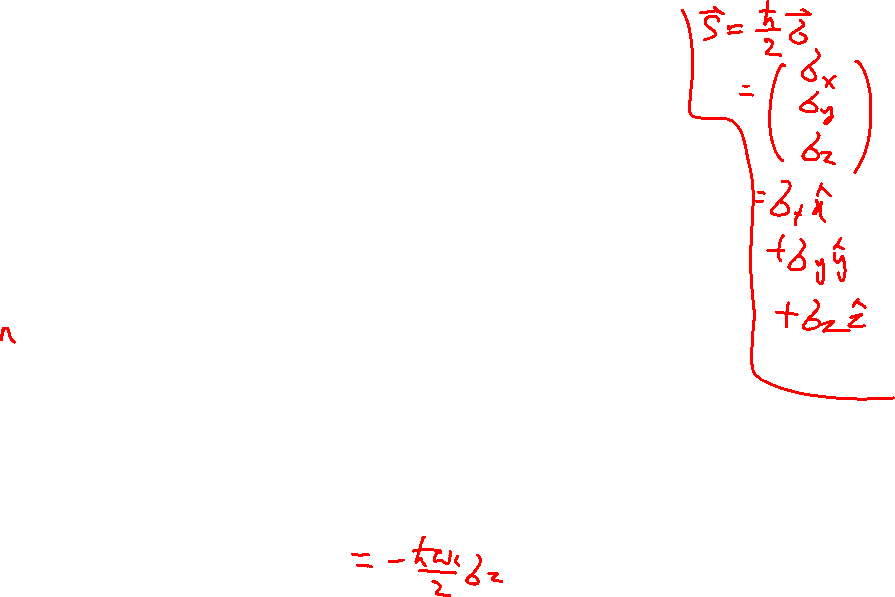 S⃗ = ħ/2 σ⃗
= ( σx
σy
σz )
= σx x̂
+ σy ŷ
+ σz ẑ
n
= - ħω/2 σz